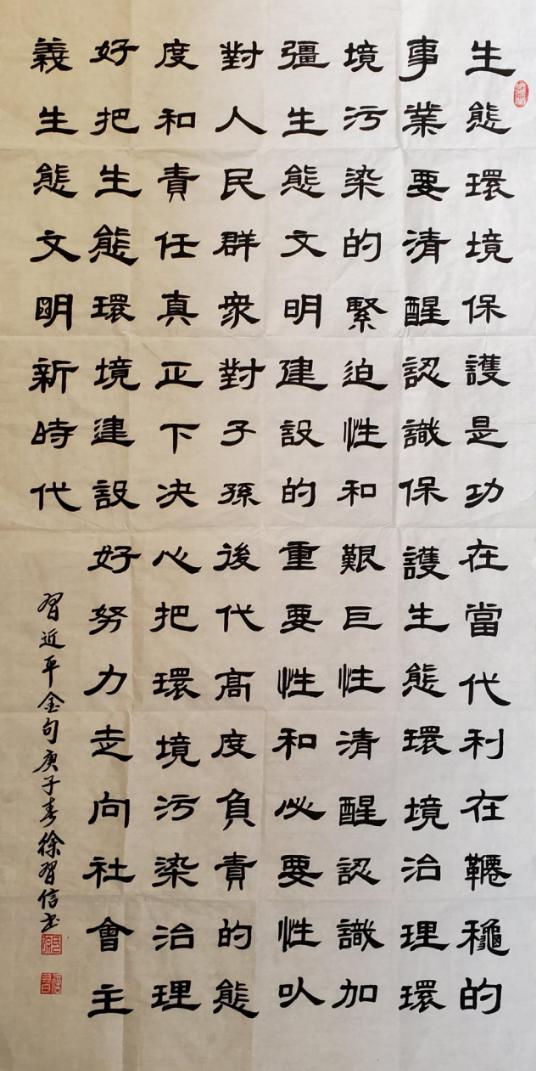 生態環境保護是功在當代利在韆龝的
事業要清醒認識保護生態環境治理環
境污染的緊迫性和艱巨性清醒認識加
彊生態文明建設的重要性和必要性以
對人民群衆對子孫後代高度負責的態
度和責任真正下决心把環境污染治理
好把生態環境建設好努力走向社會主
義生態文明新時代
習近平金句庚子春徐習信书